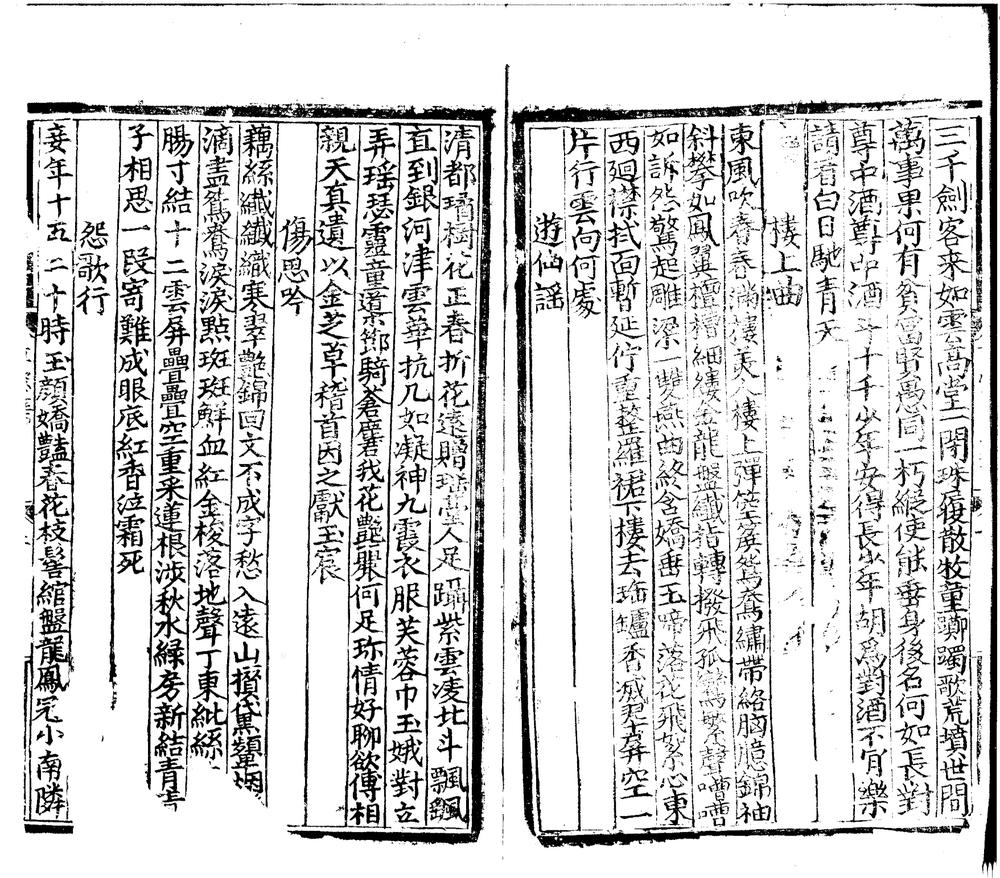 三千劍客来如雲高堂一閉珠履散牧童躑躅歌荒墳世間
萬事果何有貧富賢愚同一朽縱使能垂身後名何如長對
尊中酒尊中酒斗十千少年安得長少年胡為對酒不肯樂
請看白日馳青天
樓上曲
東風吹春春滿樓美人樓上彈箜篌鴛鴦繡帶絡胸臆錦袖
斜攀如鳳翼檀槽細縷金龍盤纖指轉撥飛孤鸞繁聲嘈嘈
如訴怨驚起雕梁一雙燕曲終含嬌垂玉啼落花飛絮心東
西廻襟拭面暫延佇重整羅裙下樓去珤鑪香滅翠屏空一
片行雲向何處
遊仙謡
清都琦樹花正春折花遠贈瑶堂人足躡紫雲凌北斗飄飄
直到銀河津雲華抗几如凝神九霞衣服芙蓉巾玉娥對立
弄瑶瑟靈童導䘮騎蒼麐我花艷裳何足珎情好聊欲傳相
親天真遺以金芝草稽首因之獻玉宸
傷思吟
藕絲纖纖織寒翠艶錦回文不成字愁入遠山攢黛顰烟
滴盡鴛鴦淚淚點斑斑鮮血紅金梭落地聲丁東紕絲
腸寸結十二雲屏疊疊空重采蓮根涉秋水緑房新結青
子相思一段寄難成眼底紅香泣霜死
怨歌行
妾年十五二十時玉顔嬌豔春花枝髻綰盤龍鳳冠小南隣